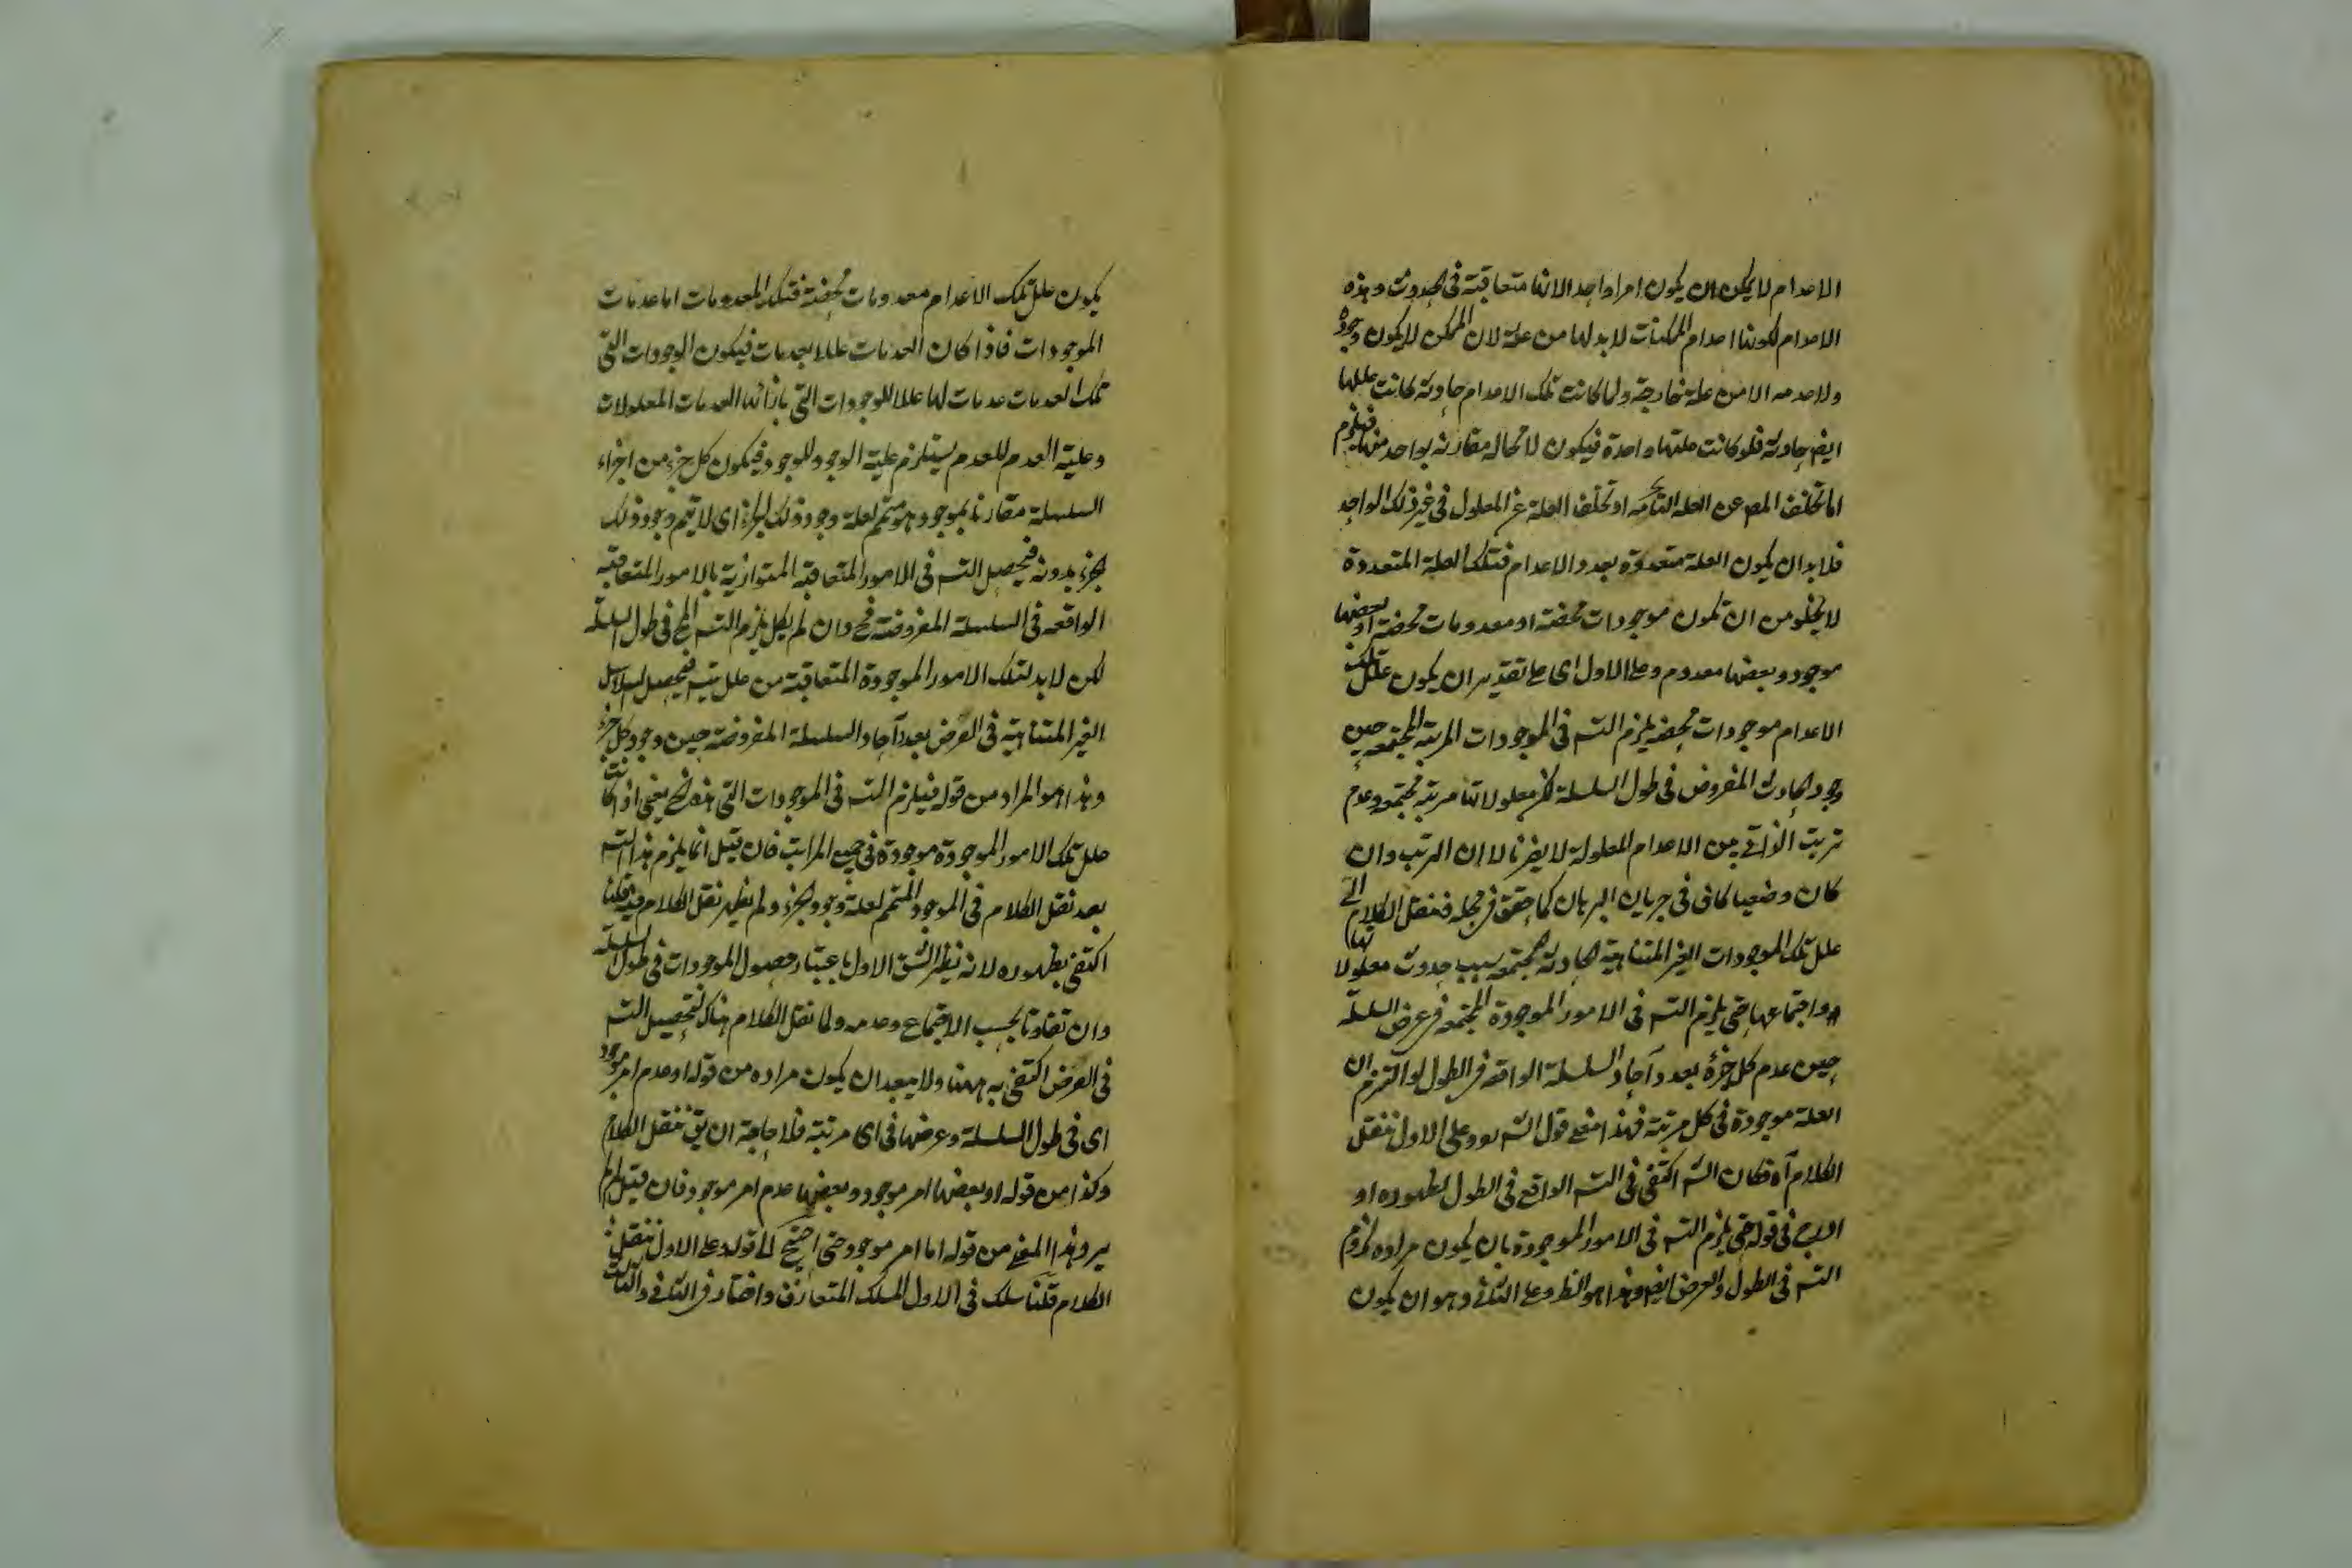 الاعدام لا يمكن ان يكون امرا واحدا لانها متعاقبة فى الحدوث وهذه
الاعدام لكونها اعدام الممكنات لا بد لها من علة لان الممكن لا يكون وجوده
ولا عدمه الا من علة خارجة ولما كانت تلك الاعدام حادثة كانت عللها
ايضا حادثة فلو كانت علتها واحدة فيكون لا محالة مقارنة بواحد منها فيلزم
اما تخلف المعـ عن العلة التامة او تخلف العلة عن المعلول فى غير ذلك الواحد
فلا بد ان يكون العلة متعددة بعدد الاعدام فتلك العلة المتعددة
لا يخلو من ان تكون موجودات محضة او معدومات محضة او بعضها
موجود وبعضها معدوم وعلى الاول اى على تقدير ان يكون علل تلك
الاعدام موجودات محضة يلزم التسـ فى الموجودات المرتبة المجتمعة حين
وجود الحادث المفروض فى طول السلسلة لكن معلولاتها مرتبة مجتمعة وعدم
ترتب الذاتى بين الاعدام المعلولة لا يضرنا لان الترتب وان
كان وضعيا كافى فى جريان البرهان كما حقق فى محله فننقل الكلام الى
علل تلك الموجودات الغير المتناهية الحادثة المجتمعة بسبب حدوث معلولاتها
واجتماعها حتى يلزم التسـ فى الامور الموجودة المجتمعة فى عرض السلسلة
حين عدم كل جزء بعدد آحاد السلسلة الواقعة فى الطول لو التزم ان
العلة موجودة فى كل مرتبة فهذا معنى قول الشـ وعلى الاول ننقل
الكلام آه فكان الشـ اكتفى فى التسـ الواقع فى الطول لظهوره او
فى قوله حتى يلزم التسـ فى الامور الموجودة بان يكون مراده لزوم
التسـ فى الطول والعرض ايضا وهذا هو الظـ وعلى الثانى وهو ان يكون
يكون علل تلك الاعدام معدومات محضة فتلك المعدومات اما عدمات
الموجودات فاذا كان العدمات عللا لعدمات فيكون الوجودات التى
تلك العدمات عدمات لها عللا للوجودات التى بازائها العدمات المعلولات
وعلية العدم للعدم يستلزم علية الوجود للوجود فيكون كل جزء من اجزاء
السلسلة مقارنا بموجود هو متمم لعلة وجود ذلك الجزء اى لا يتم وجود ذلك
الجزء بدونه فيحصل التسـ فى الامور المتعاقبة المتوازية بالامور المتعاقبة
الواقعة فى السلسلة المفروضة فح وان لم يكن يلزم التسـ المح فى طول السلسلة
لكن لا بد لتلك الامور الموجودة المتعاقبة من علل فيحصل السلاسل
الغير المتناهية فى العرض بعدد آحاد السلسلة المفروضة حين وجود كل جزء
وهذا هو المراد من قوله فيلزم التسـ فى الموجودات التى هذه يعنى اذا كانت
علل تلك الامور الموجودة موجودة فى جميع المراتب فان قيل انما يلزم هذا التسـ
بعد نقل الكلام فى الموجود المتمم لعلة وجود الجزء ولم يظهر نقل الكلام فيه قلنا
اكتفى بظهوره لانه نظير الشق الاول باعتبار حصول الموجودات فى طول السلسلة
وان تفاوتا بحسب الاجتماع وعدمه ولما نقل الكلام هناك لتحصيل التسـ
فى العرض اكتفى به ههنا ولا يبعد ان يكون مراده من قوله او عدم امر موجود
اى فى طول السلسلة وعرضها فى اى مرتبة فلا حاجة ان يق ننقل الكلام
وكذا من قوله او بعضها امر موجود وبعضها عدم امر موجود فان قيل لم لم
يرد هذا المعنى من قوله اما امر موجود حتى احتيج الى قوله وعلى الاول ننقل
الكلام قلنا سلك فى الاول المسلك المتعارف واختار فى الثانى والثالث